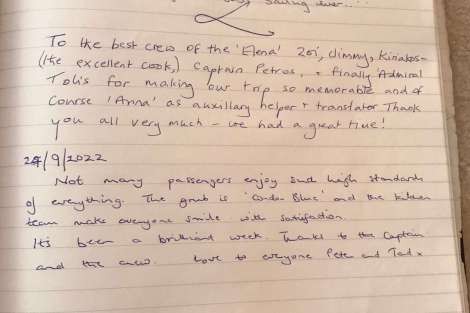 sailing ever...
To the best crew of the 'Elena' Zoi, Jimmy, Kiriakos-
(the excellent cook,) Captain Petros, + finally Admiral
Tolis for making our trip so memorable and of
Course 'Anna' as auxillary helper + translator Thank
you all very much - we had a great time!
24/9/2022
Not many passengers enjoy such high standards
of everything. The grub is 'Cordon Blue' and the kitchen
team make everyone smile with satisfaction.
It's been a brilliant week. Thanks to the Captain
and the crew. Love to everyone Pete and Tad x